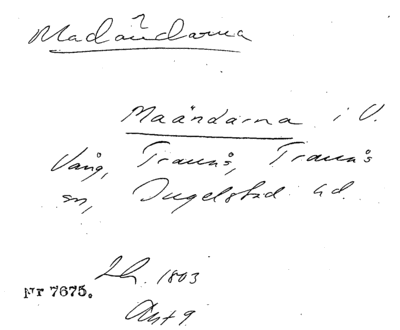 Madändarna
Maändarna i V.
Vång, Tranås, Tranås
sn, Ingelstad hd.
Lh. 1803
Nr 7675.
Akt 9